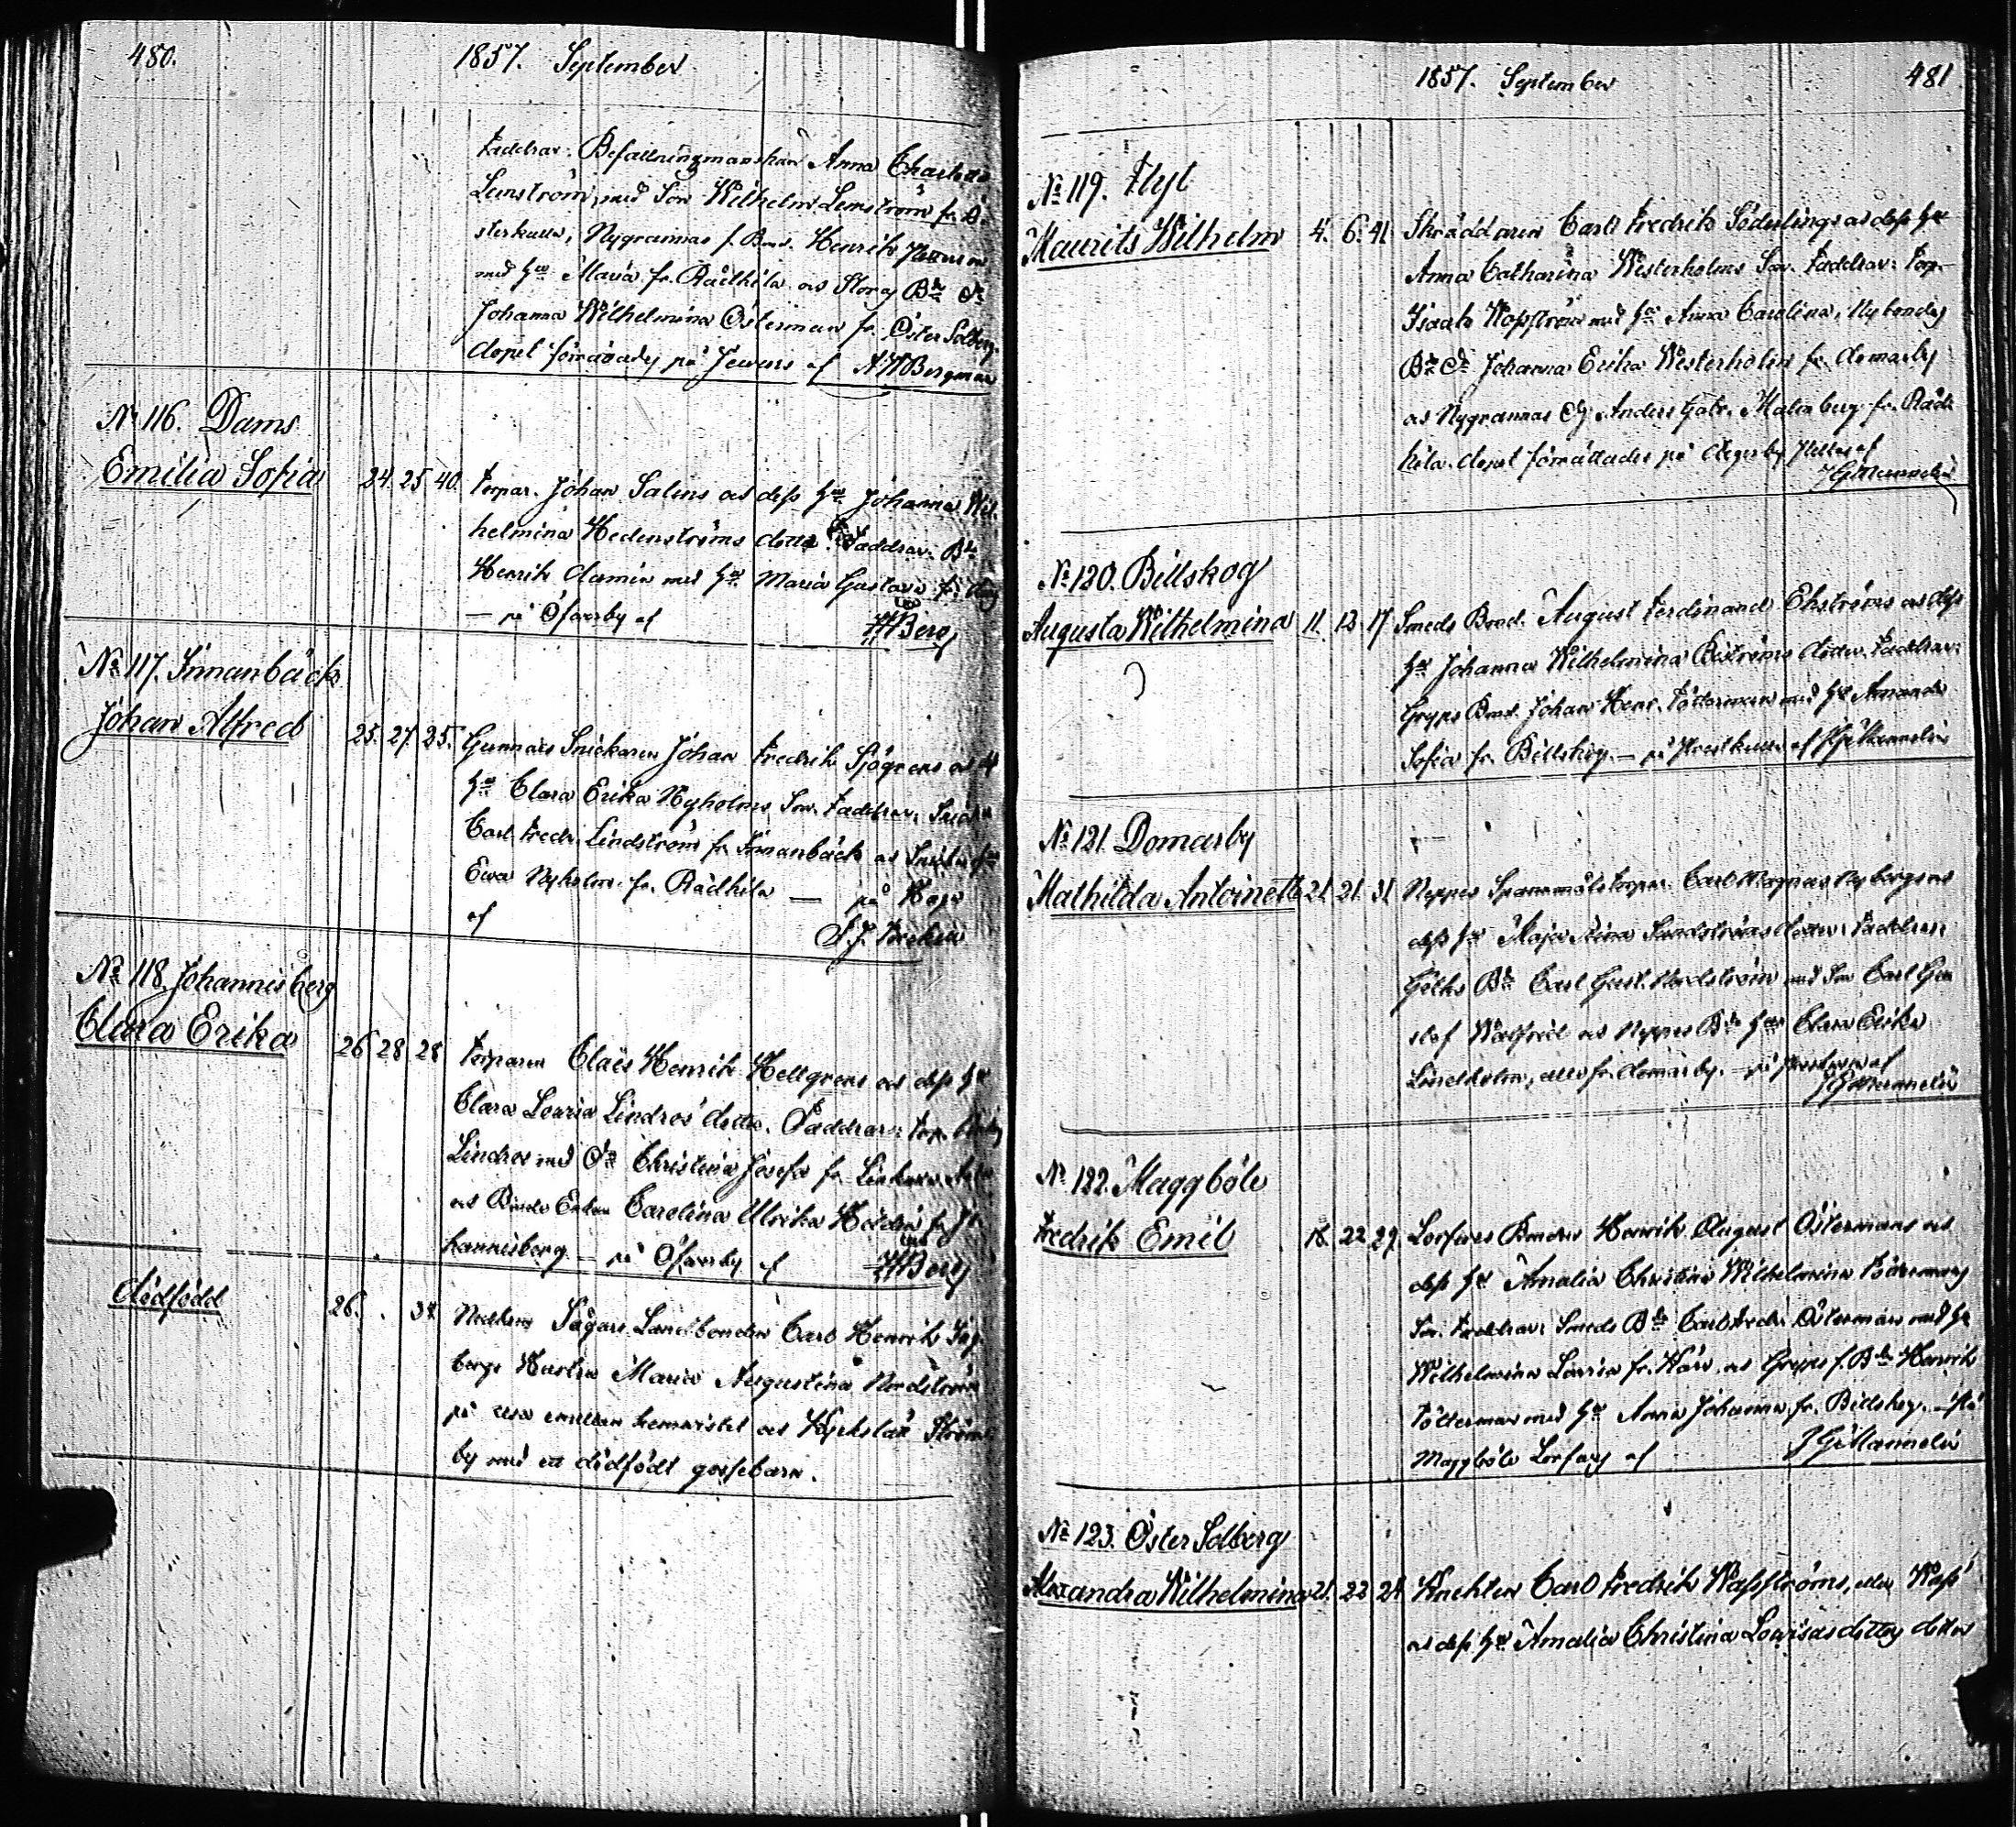 480.
1857. September
Faddrar. Befallningsmanskan Anna
Lenström, med Son Wilhelm Lenström fr. Ö-
sterkulla, Nygrannas f. Bond. Henrik
med Hu Maria fr. Rådhila och Storas Bde Dr
Johanna Wilhelmina Österman fr. Öster Solberg.
Dopet förrättades på Jewens af A W Bergman
No 116. Dams
Emilia Sofia 24. 25. 40. Torpar. Johan Salins och dess Hu Johanna Wil-
helmina Hedenströms dotter. Faddrar. Bde
Henrik med Hu Maria Gustava fr.
— på Öfverby af Berg
No 117. Finnanbäck
Johan Alfred 25. 27. 25. Gunnars Snickaren Johan Fredrik Sjögrens och
Hu Clara Erika Nyholms Son. Faddrar.
Carl Fredr. Lindström fr. Finnanbäck och
Ewa Nyholm fr. Rådhila — på Haga
af
No 118. Johannisberg
Clara Erika 26 28 28 Torparen Claës Henrik Hellgrens och dess Hu
Clara Lovisa Lindros' dotter. Faddrar: Torp.
Lindros med Dr Christina Josefa fr.
och Bonde Enkan Carolina Ulrika fr. Jo-
hannisberg — på Öfverby af Berg
dödfödd 26. . 37 Sågars Landbonden Carl Henrik Säg-
bergs Hustru Maria Augustina Nordström
på resa emellan hemvistet och Kyrkslätt
by med ett dödfödt gossebarn.
1857. September 481
No 119. Flyt
Maurits Wilhelm 4. 6. 41 Skräddaren Carl Fredrik Söderlings och dess Hu
Anna Catharina Westerholms Son. Faddrar: Torp.
Isaak Wassström med Hu Anna Carolina, Nybondas
Bde Dr Johanna Erika Westerholm fr. Domarby
och Nygrannas Anders Gabr. Malmberg fr. Råd-
hila. Dopet förrättades på af
J G Mannelin
No 120. Billskog
Augusta Wilhelmina 11. 13. 17 Smeds Bond. August Ferdinand Ekströms och dess
Hu Johanna Wilhelmina dotter. Faddrar:
Gryps Bond. Johan Henr. Töttermann med Hu Amanda
Sofia fr. Billskog. — på af J G Mannelin
No 121. Domarby
Mathilda Antoinette 21. 21. 31 Neppes Spannmålstorpar. Carl Magnus Nybergs och
dess Hu Maja Stina Sundströms dotter. Faddrar:
Gölks Bde Carl Gust. Nordström med Son Carl Gu-
staf Walfrid och Neppes Bde Hu Clara Erika
Lindholm, alla fr. Domarby. — på af
J G Mannelin
No 122. Maggböle
Fredrik Emil 18. 22. 29. Lorfvars Bonden Henrik August Östermans och
dess Hu Amalia Christina Wilhelmina Töttermans
Son. Faddrar: Smeds Bde Carl Fredr. Österman med Hu
Wilhelmina Lovisa fr. och Gryps f. Bde Henrik
Tötterman med Hu Anna Johanna fr. Billskog. — På
Maggböle Lorfvars af J G Mannelin
No 123. Öster Solberg
Alexandra Wilhelmina 21. 22 24 Knekten Carl Fredrik Wassströms, eller Wass'
och dess Hu Amalia Christina Lovisas dotters dotter